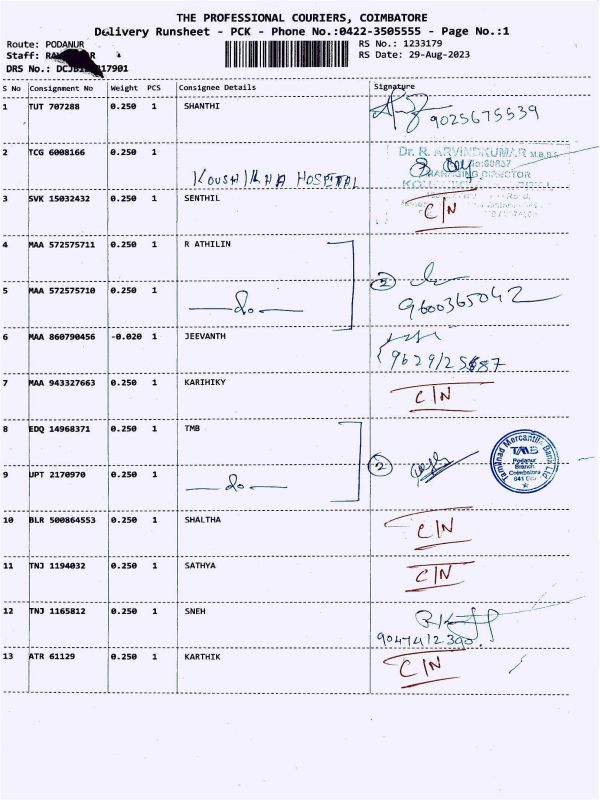 THE PROFESSIONAL COURIERS, COIMBATORE
Delivery Runsheet - PCK - Phone No.:0422-3505555 - Page No.:1
Route: PODANUR
RS No.: 1233179
Staff:
RS Date: 29-Aug-2023
DRS No.:
S No Consignment No Weight PCS Consignee Details Signature
1 TUT 707288 0.250 1 SHANTHI
9025675539
2 TCG 6008166 0.250 1 KOUSHIKHA HOSPITAL
Dr. R. ARVINDKUMAR M.B.B.S
MANAGING DIRECTOR
3 SVK 15032432 0.250 1 SENTHIL C/N
4 MAA 572575711 0.250 1 R ATHILIN
5 MAA 572575710 0.250 1 —do— 2
9600365042
6 MAA 860790456 -0.020 1 JEEVANTH
7 MAA 943327663 0.250 1 KARIHIKY C/N
8 EDQ 14968371 0.250 1 TMB
Tamilnad Mercantile Bank Ltd
TMB
Podanur
Branch
Coimbatore
9 UPT 2170970 0.250 1 —do— 2
10 BLR 500864553 0.250 1 SHALTHA C/N
11 TNJ 1194032 0.250 1 SATHYA C/N
12 TNJ 1165812 0.250 1 SNEH
9047412390
13 ATR 61129 0.250 1 KARTHIK C/N